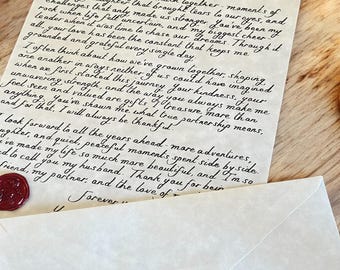 together - moments of
laughter that brought tears to our eyes, and
challenges that made us stronger. You've been my
when life felt uncertain, and my biggest cheer
leader when it was time to chase our dreams. Through it
all, your love has been the constant that keeps me
grounded and grateful every single day.
I often think about how we've grown together, shaping
one another in ways neither of us could have imagined
when we first started this journey. Your kindness, your
unwavering strength, and the way you always make me
feel seen and valued are gifts I treasure more than
You've shown me what true partnership means,
and for that, I will always be thankful.
I look forward to all the years ahead: more adventures,
and quiet, peaceful moments spent side by side.
You've made my life so much more beautiful, and I'm so
to call you my husband. Thank you for being
friend, my partner, and the love of
Forever